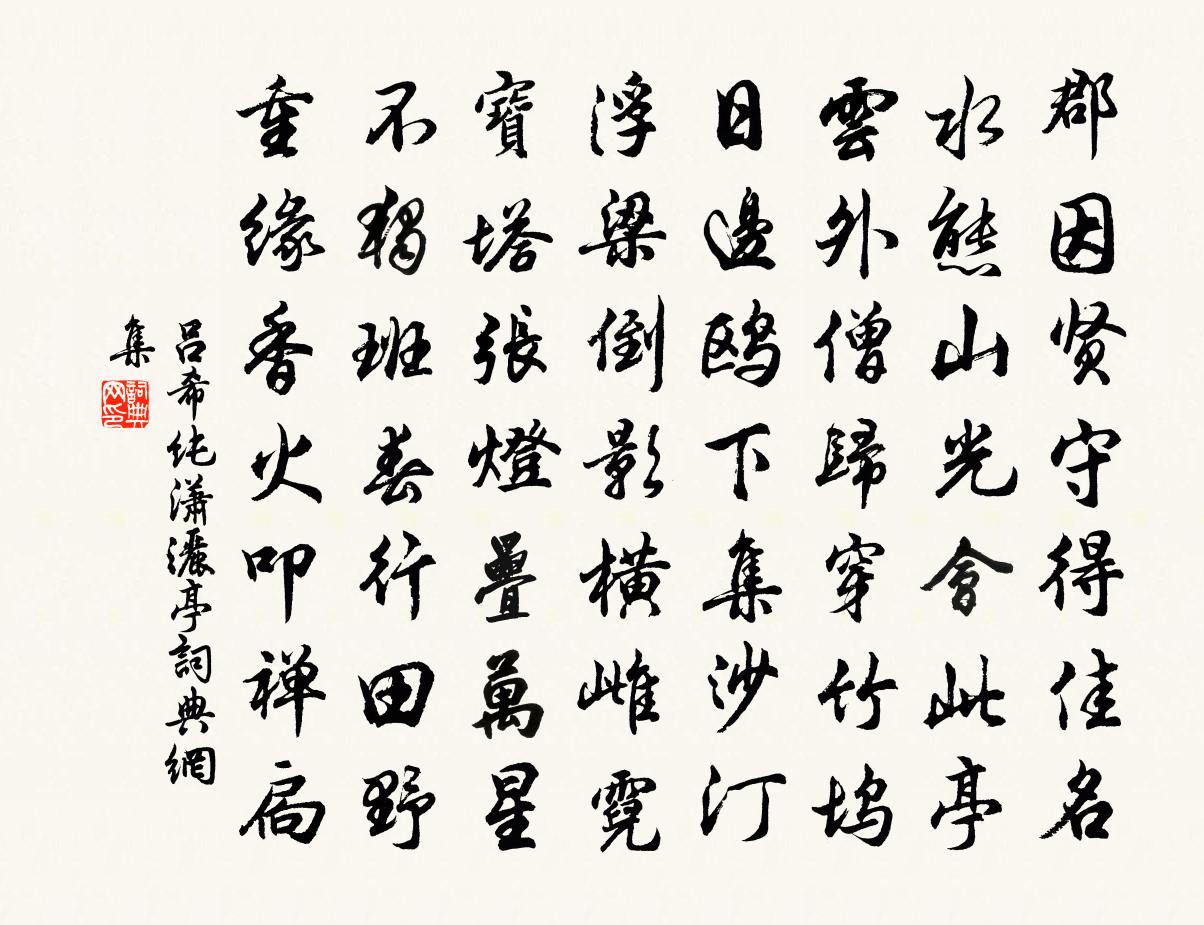 郡因贤守得佳名
水態山光會此亭
雲外僧歸穿竹塢
日邊鸥下集沙汀
浮梁倒影橫雌霓
寶塔張燈疊萬星
不獨班春行田野
重緣香火叩禅扃
吕希纯潇灑亭詞典網
集
詞典网印